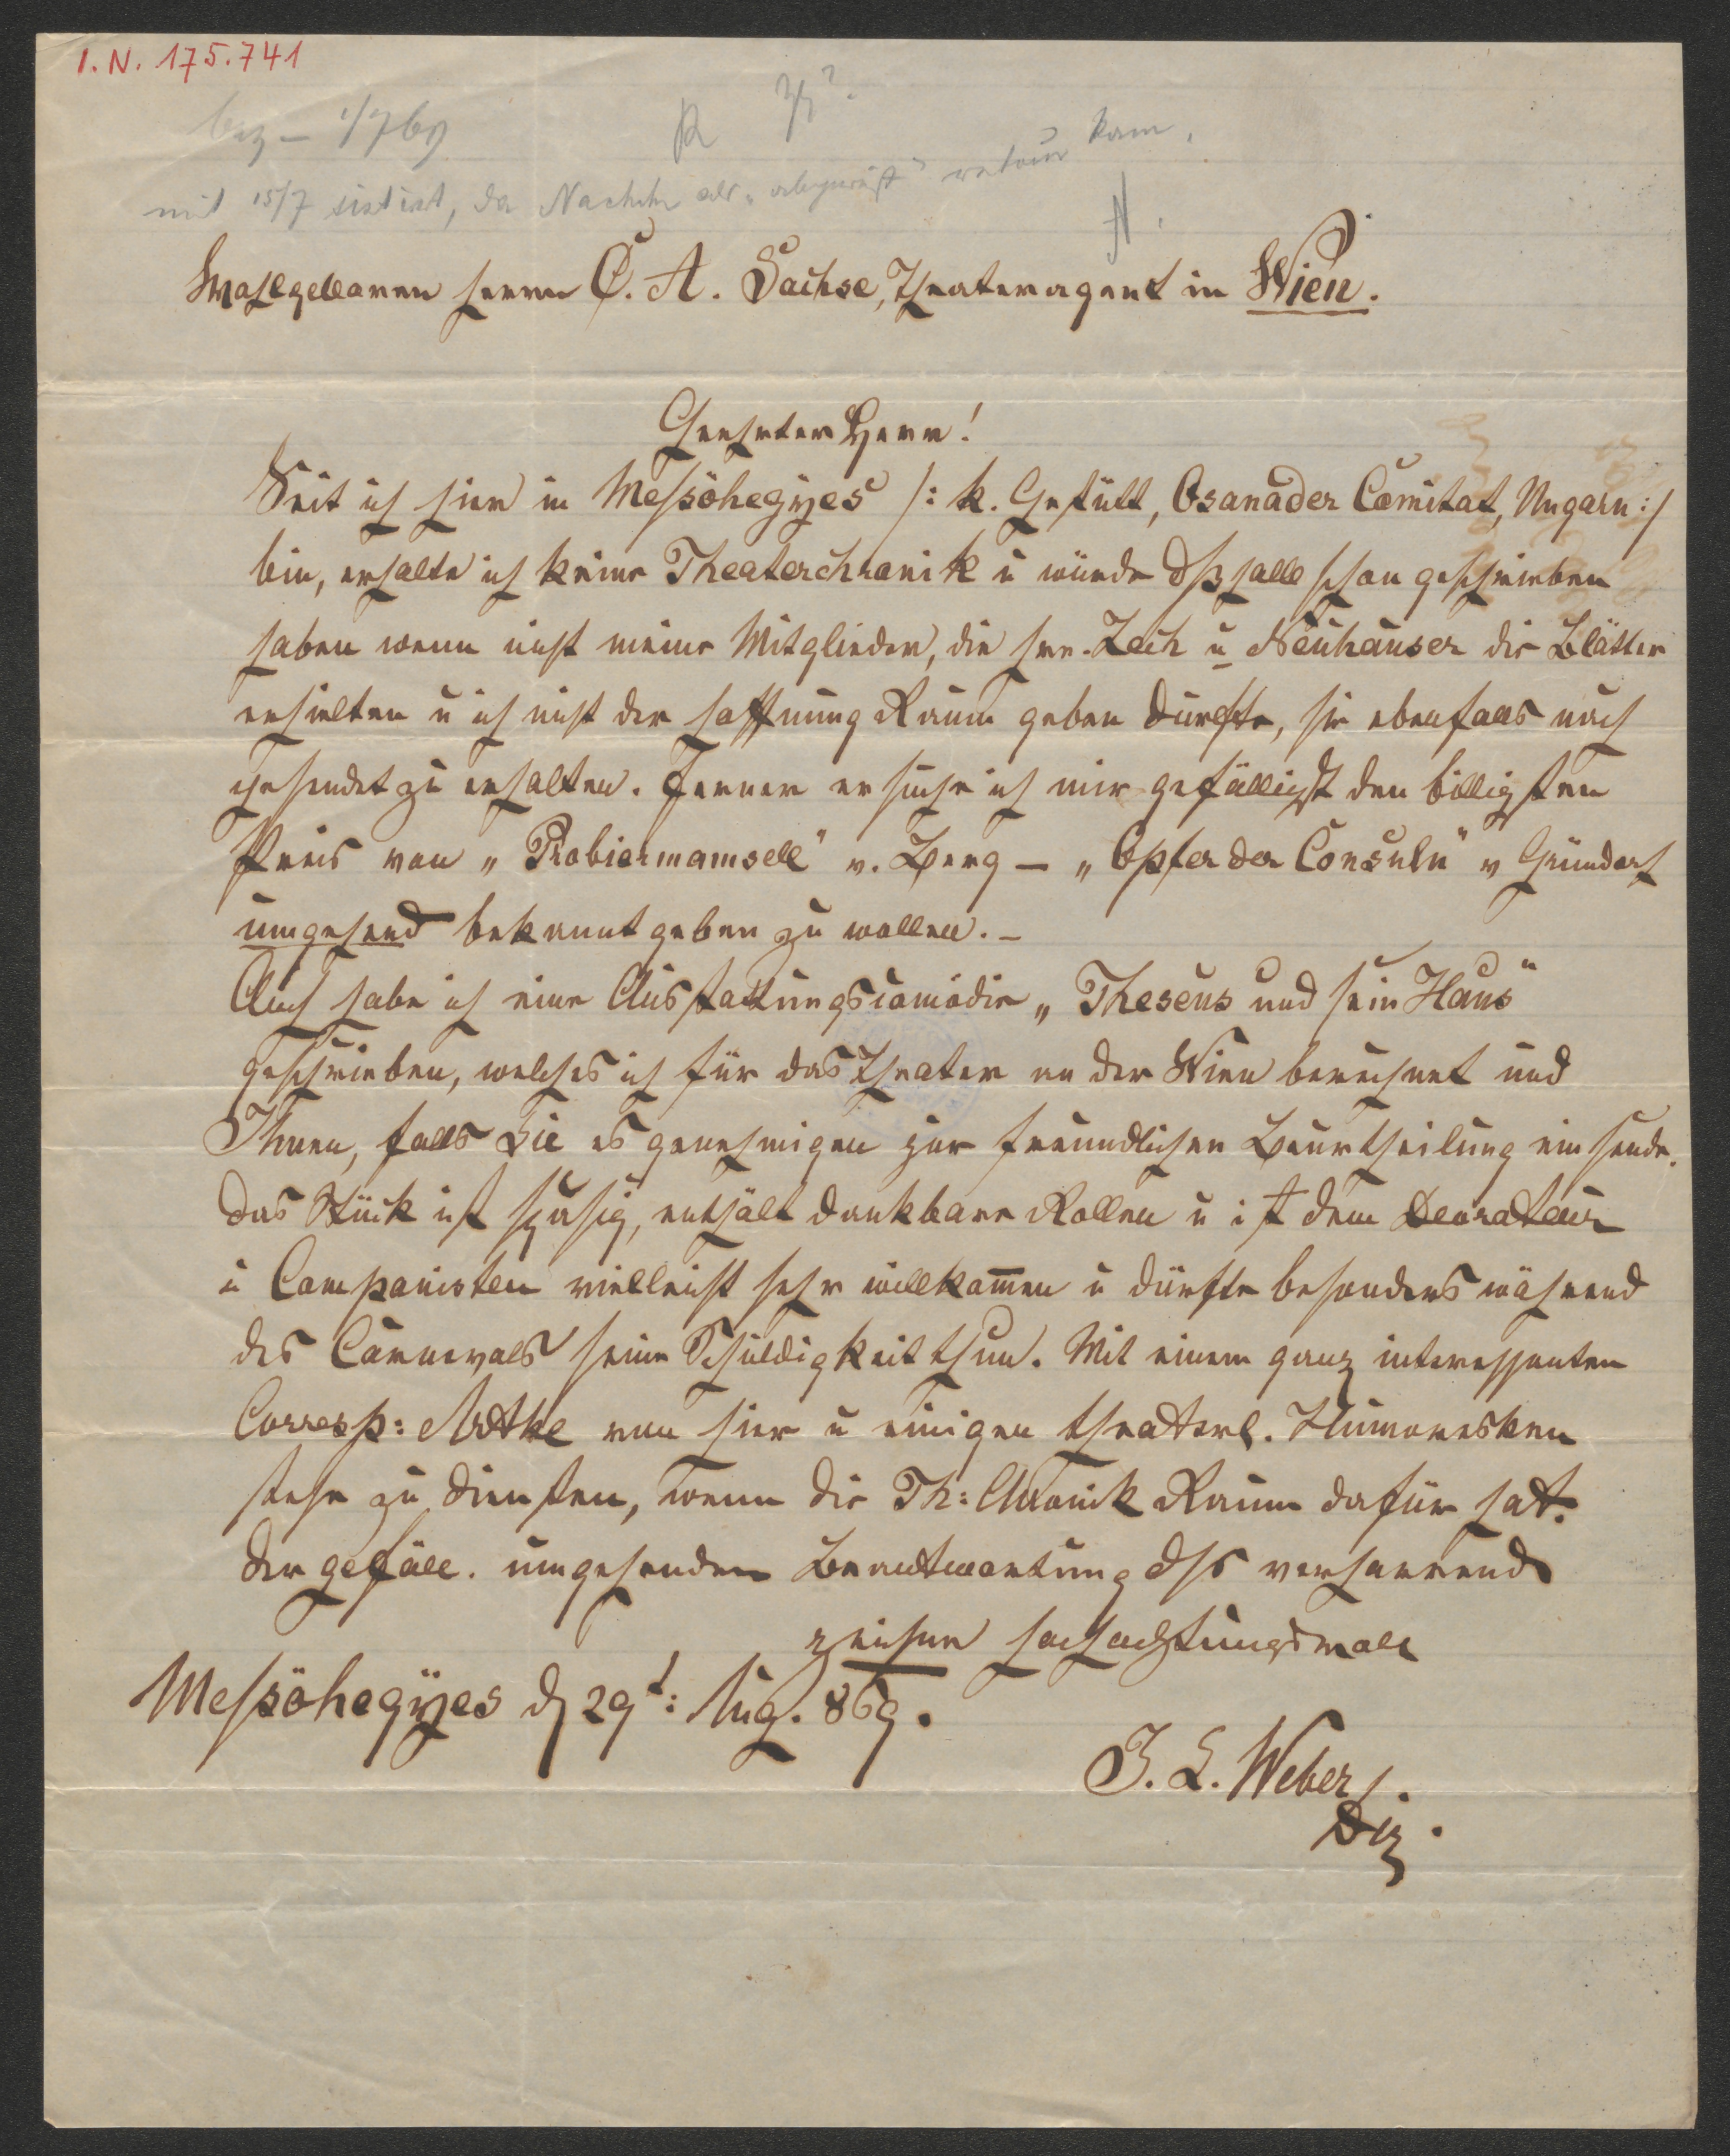 I.N. 175.741
bez – 1/7 69
R
mit 15/7 sistirt, da Nachn als „abgereist" retour kam.
Wohlgeboren Herrn C. A. Sachse, Theateragent in Wien.
Geehrter Herr!
Seit ich hier in Messöhegyes /: k. Gestütt, Csanader Comitat, Ungarn :/
bin, erhalte ich keine Theaterchronik u würde dßhalb schon geschrieben
haben wenn nicht meine Mitglieder, die Hrr. Zech u Neuhauser die Blätter
erhielten u ich nicht der Hoffnung Raum geben durfte, sie ebenfalls nach
gesendet zu erhalten. Ferner ersuche ich mir gefälligst den billigsten
Preis von „Probiermamsell" v. Berg – „Opfer der Consuln" v Gründorf
umgehend bekannt geben zu wollen. –
Auch habe ich eine Ausstattungscomödie „Theseus und sein Haus"
geschrieben, welches ich für das Theater an der Wien berechnet und
Ihnen, falls Sie es genehmigen zur freundlichen Beurtheilung einsende.
Das Stück ist spasig, enthält dankbare Rollen u ist dem Deorateur
u Componisten vielleicht sehr willkommen u dürfte besonders während
des Carnevals seine Schuldigkeit thun. Mit einem ganz interessanten
Corresp: Artike von hier u einigen theaterl. Humoresken
stehe zu Diensten, wenn die Th: Chronik Raum dafür hat.
Der gefäll. umgehenden Beantwortung dss verharrend
zeichne hochachtungsvoll
Messöhegyes d 29t: Aug. 869.
J. L. Weber
Dir.